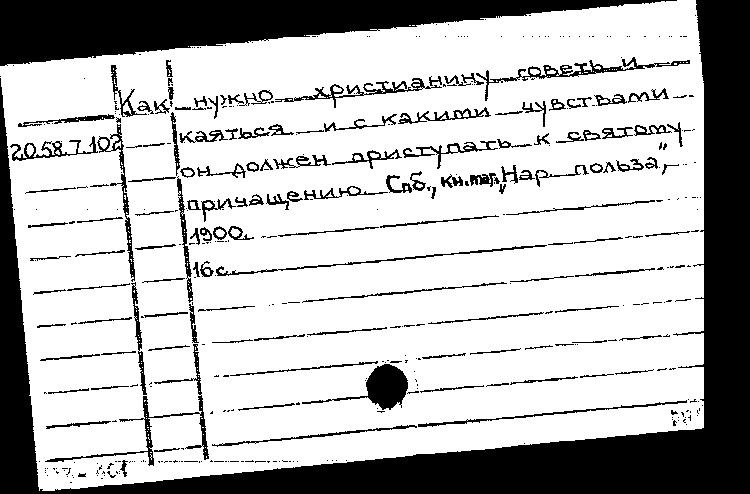 Как нужно христианину говеть и
20.58.7.102 каяться и с какими чувствами
он должен приступать к святому
причащению. Спб., кн.маг. „Нар. польза",
1900.
16 с.